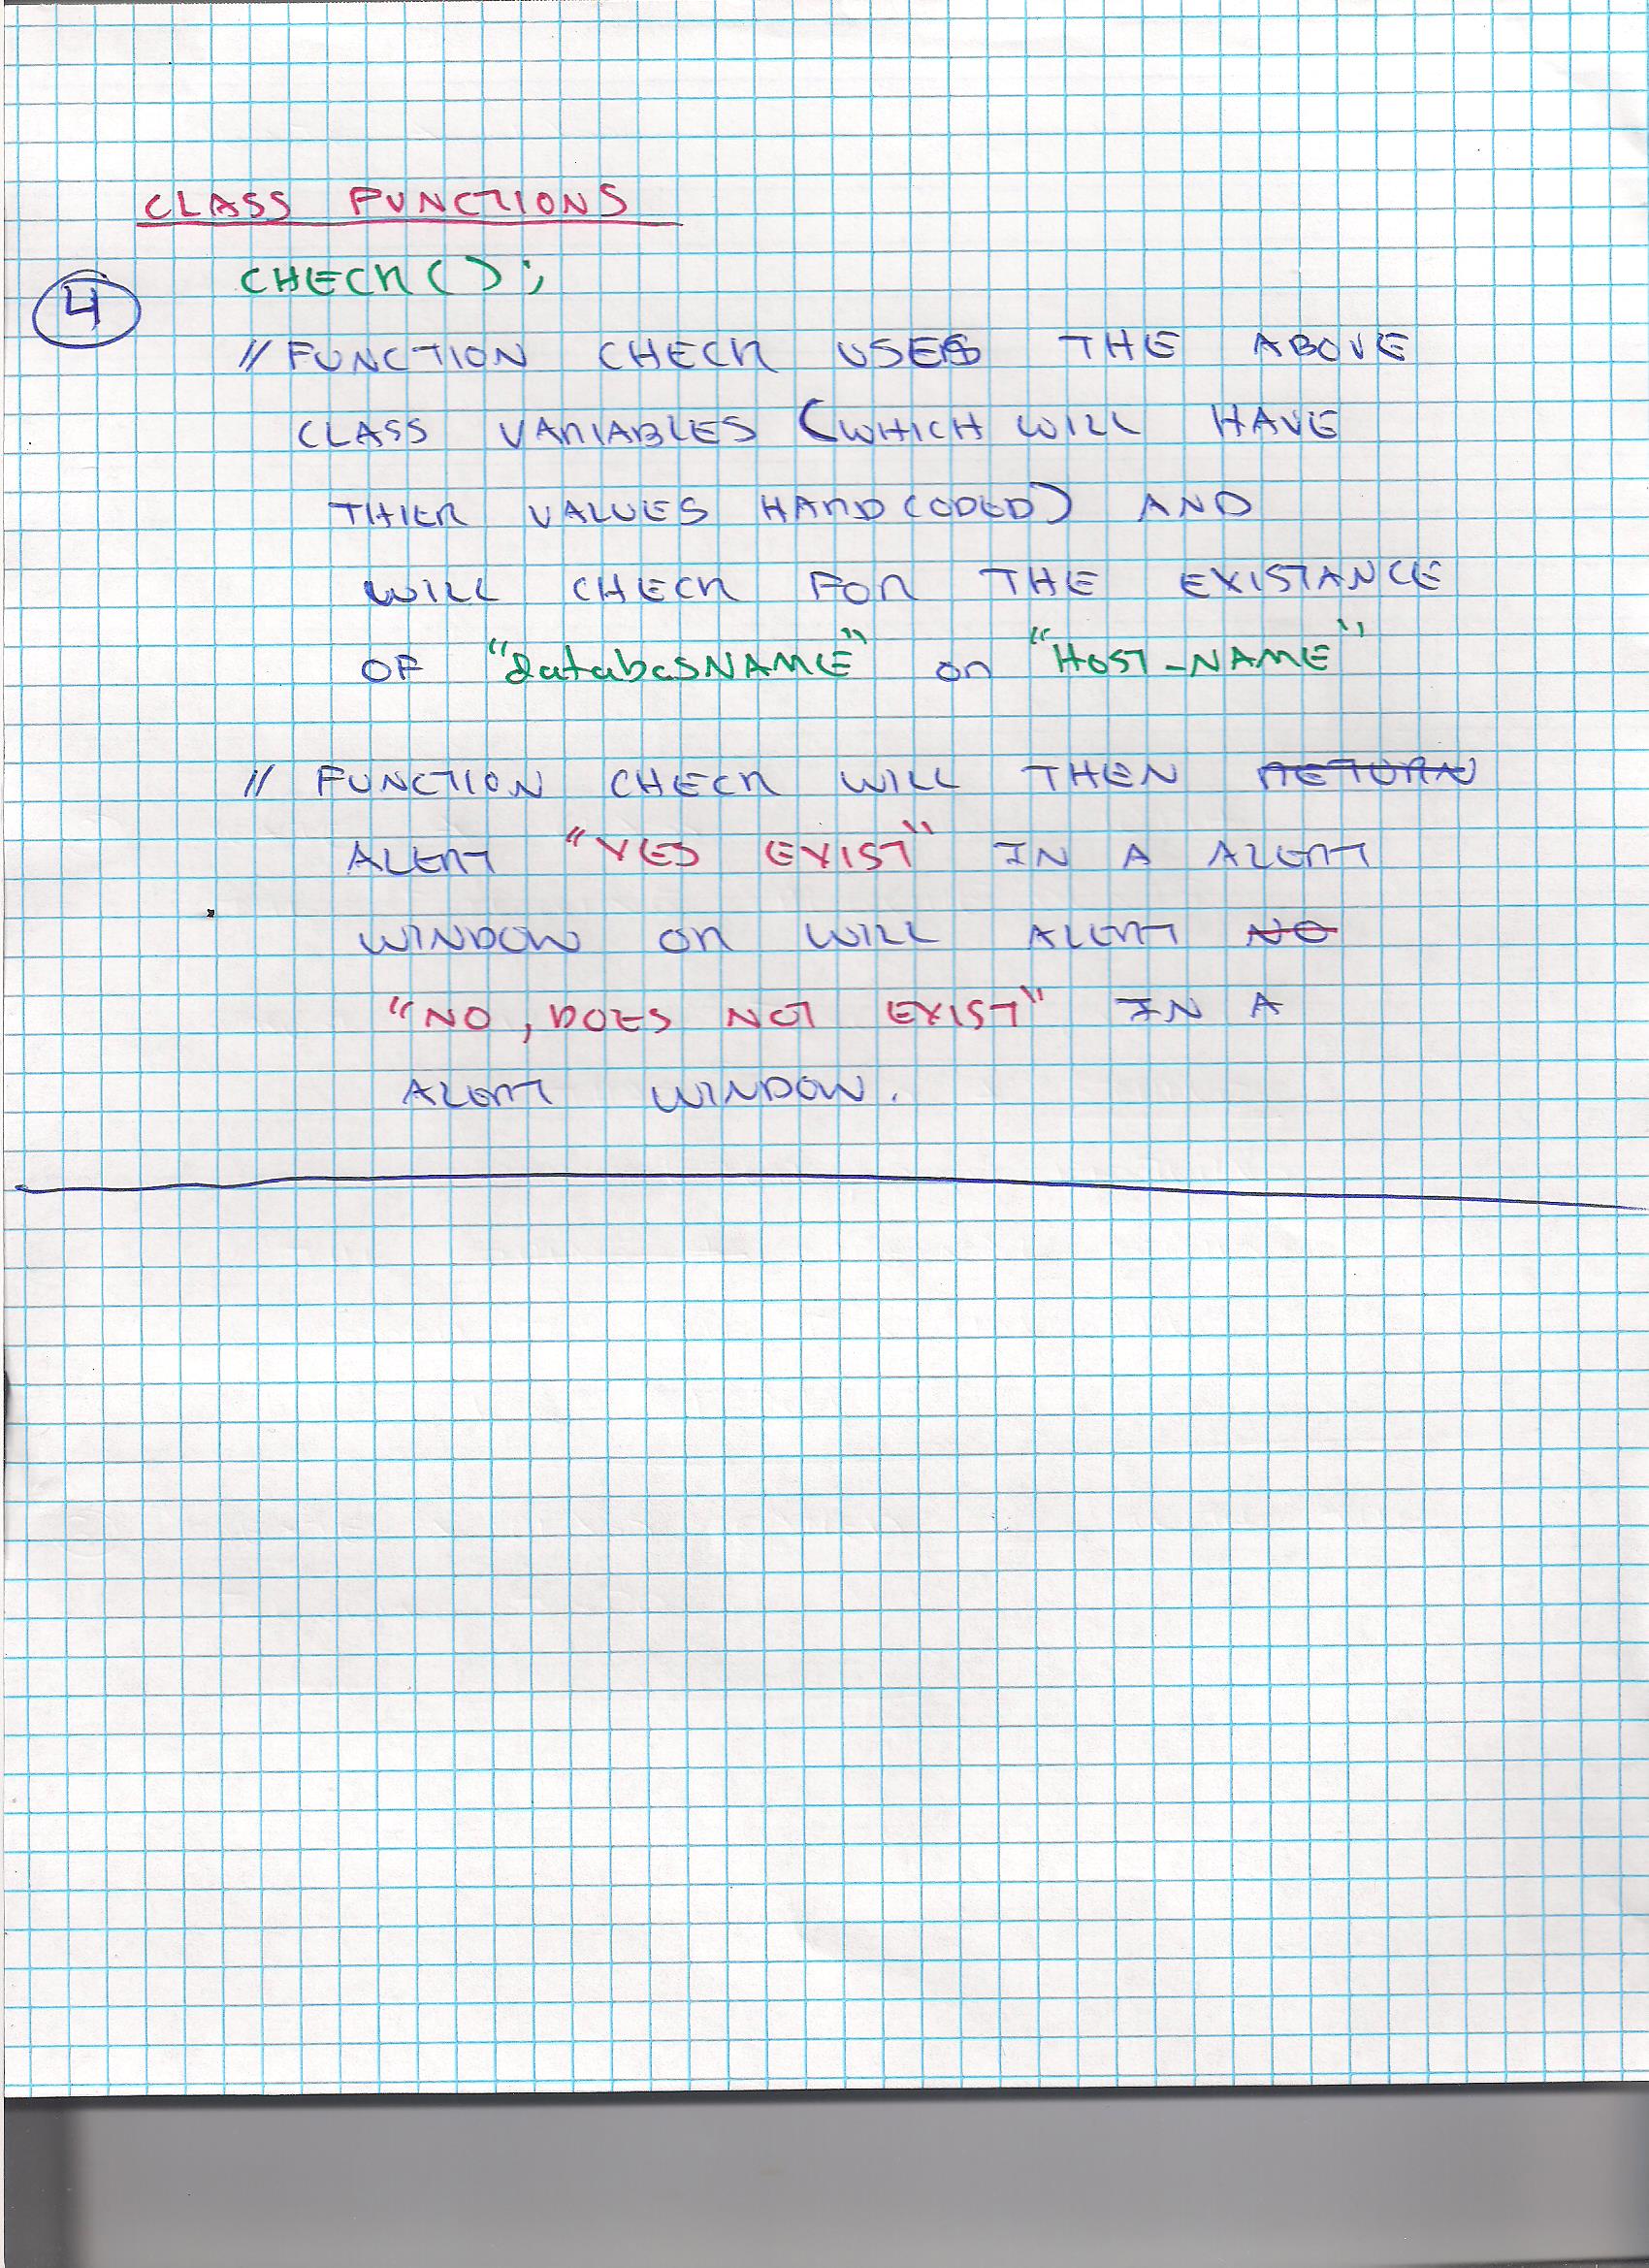 CLASS FUNCTIONS
4
CHECK();
// FUNCTION CHECK USES THE ABOVE
CLASS VARIABLES (WHICH WILL HAVE
THIER VALUES HARDCODED) AND
WILL CHECK FOR THE EXISTANCE
OF "databasNAME" on "HOST-NAME"
// FUNCTION CHECK WILL THEN RETURN
ALERT "YES EXIST" IN A ALERT
WINDOW OR WILL ALERT NO
"NO, DOES NOT EXIST" IN A
ALERT WINDOW.